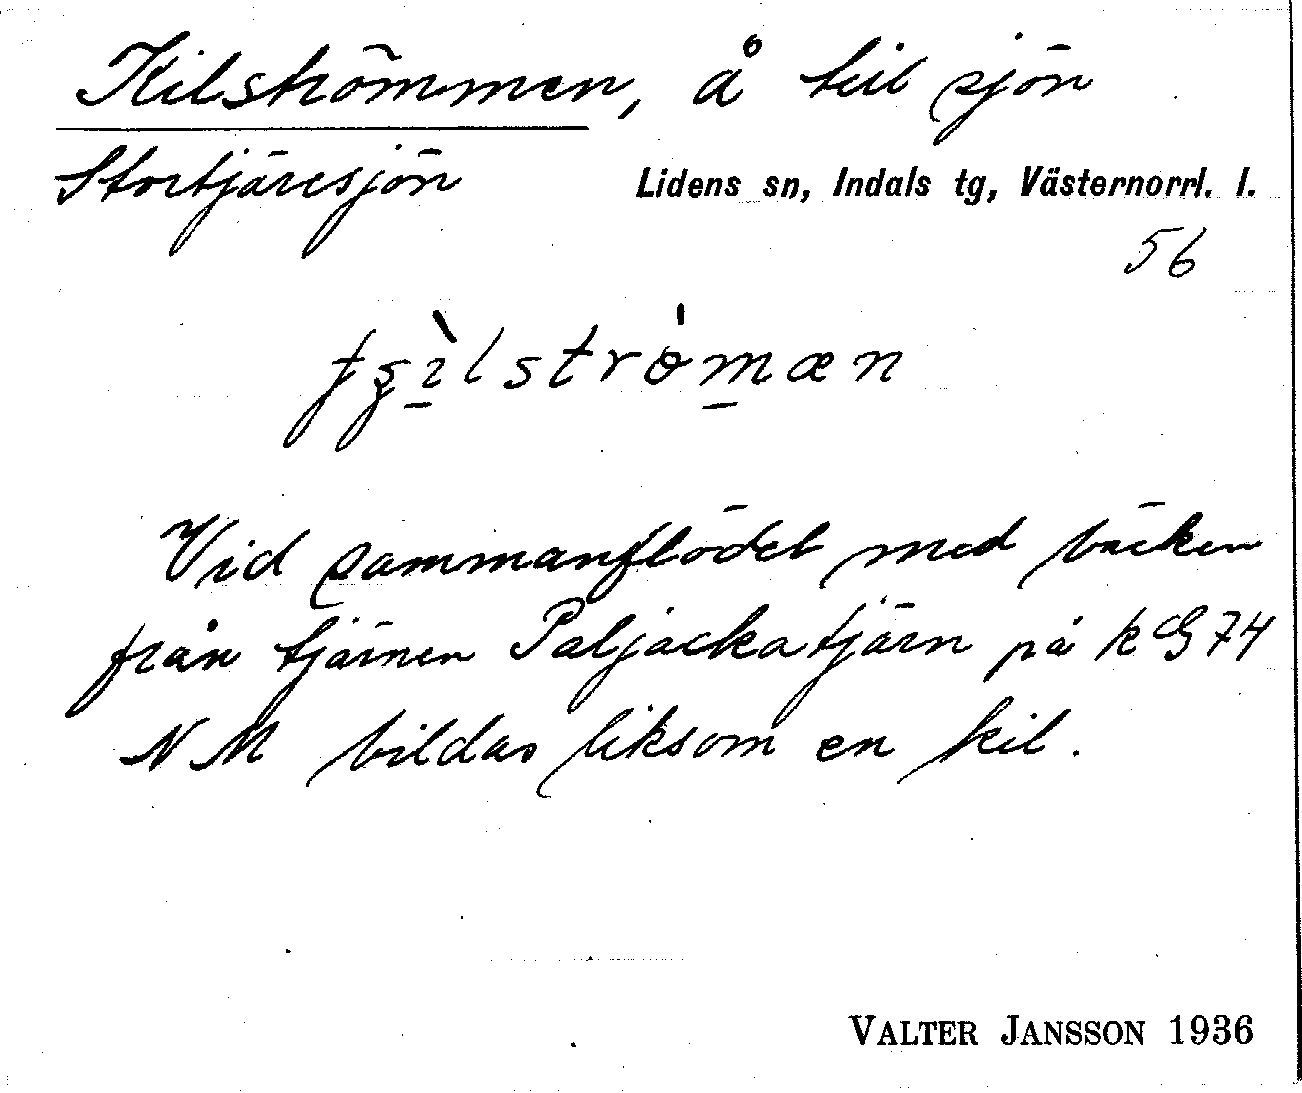 Kilströmmen, å till sjön
Stortjäresjön
Lidens sn, Indals tg, Västernorrl. l.
56
Vid sammanflödet med bäcken
från tjärnen Paljackatjärn på k G 74
N M bildas liksom en kil.
VALTER JANSSON 1936